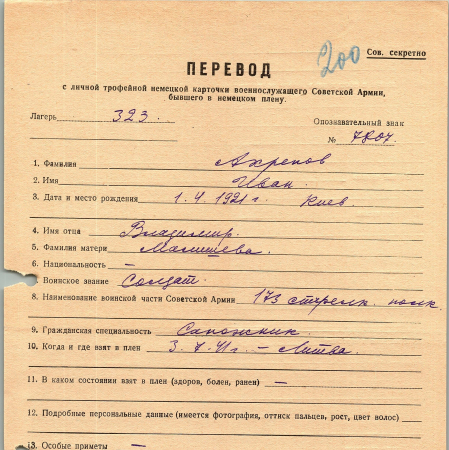 200
Сов. секретно
ПЕРЕВОД
с личной трофейной немецкой карточки военнослужащего Советской Армии,
бывшего в немецком плену.
Лагерь 323.
Опознавательный знак
№ 7807.
1. Фамилия Ахрепов
2. Имя Иван.
3. Дата и место рождения 1. 4 1921 г. Киев.
4. Имя отца Владимир.
5. Фамилия матери Малишева.
6. Национальность —
Воинское звание Солдат.
8. Наименование воинской части Советской Армии 173 стрелк. полк.
9. Гражданская специальность Сапожник.
10. Когда и где взят в плен 3. 7. 41 г. – Литва.
11. В каком состоянии взят в плен (здоров, болен, ранен) —
12. Подробные персональные данные (имеется фотография, оттиск пальцев, рост, цвет волос)
13. Особые приметы —